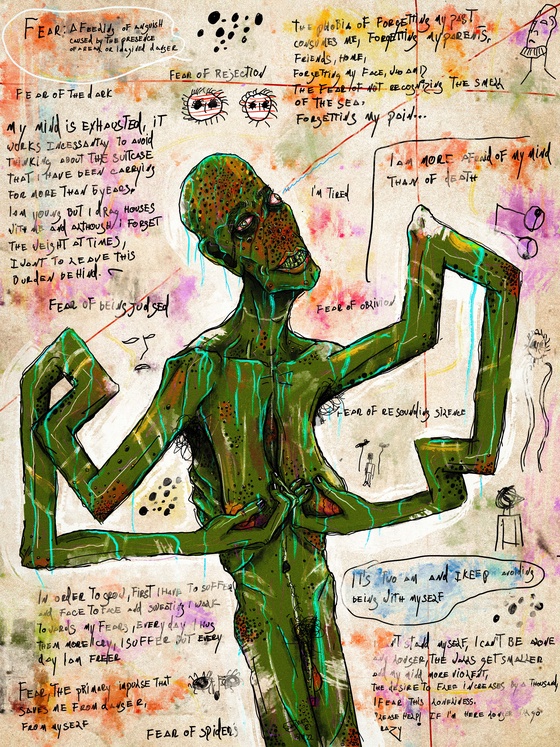 Fear: A feeling of anguish
caused by the presence
of a real or imagined danger
The phobia of forgetting my past
consumes me, forgetting my parents,
friends, home,
forgetting my face, who am I?
The fear of not recognizing the smell
of the sea.
Forgetting my pain...
Fear of rejection
Fear of the dark
My mind is exhausted, it
works incessantly to avoid
thinking about the suitcase
that I have been carrying
for more than 6 years,
I am young but I drag houses
with me and although I forget
the weight at times,
I want to leave this
burden behind.
I am more afraid of my mind
than of death
I'm tired
Fear of being judged
Fear of oblivion
Fear of resounding silence
It's two am and I keep avoiding
being with myself
In order to grow, first I have to suffer
and face to face and sweating I walk
towards my fears, every day I hug
them more, I cry, I suffer but every
day I am freer
Fear, the primary impulse that
saves me from danger,
from myself
Fear of spiders
I can't stand myself, I can't be alone
any longer, the walls get smaller
and my mind more violent,
the desire to flee increases by a thousand,
I fear this loneliness.
Please help! If I'm here longer I'll go
crazy